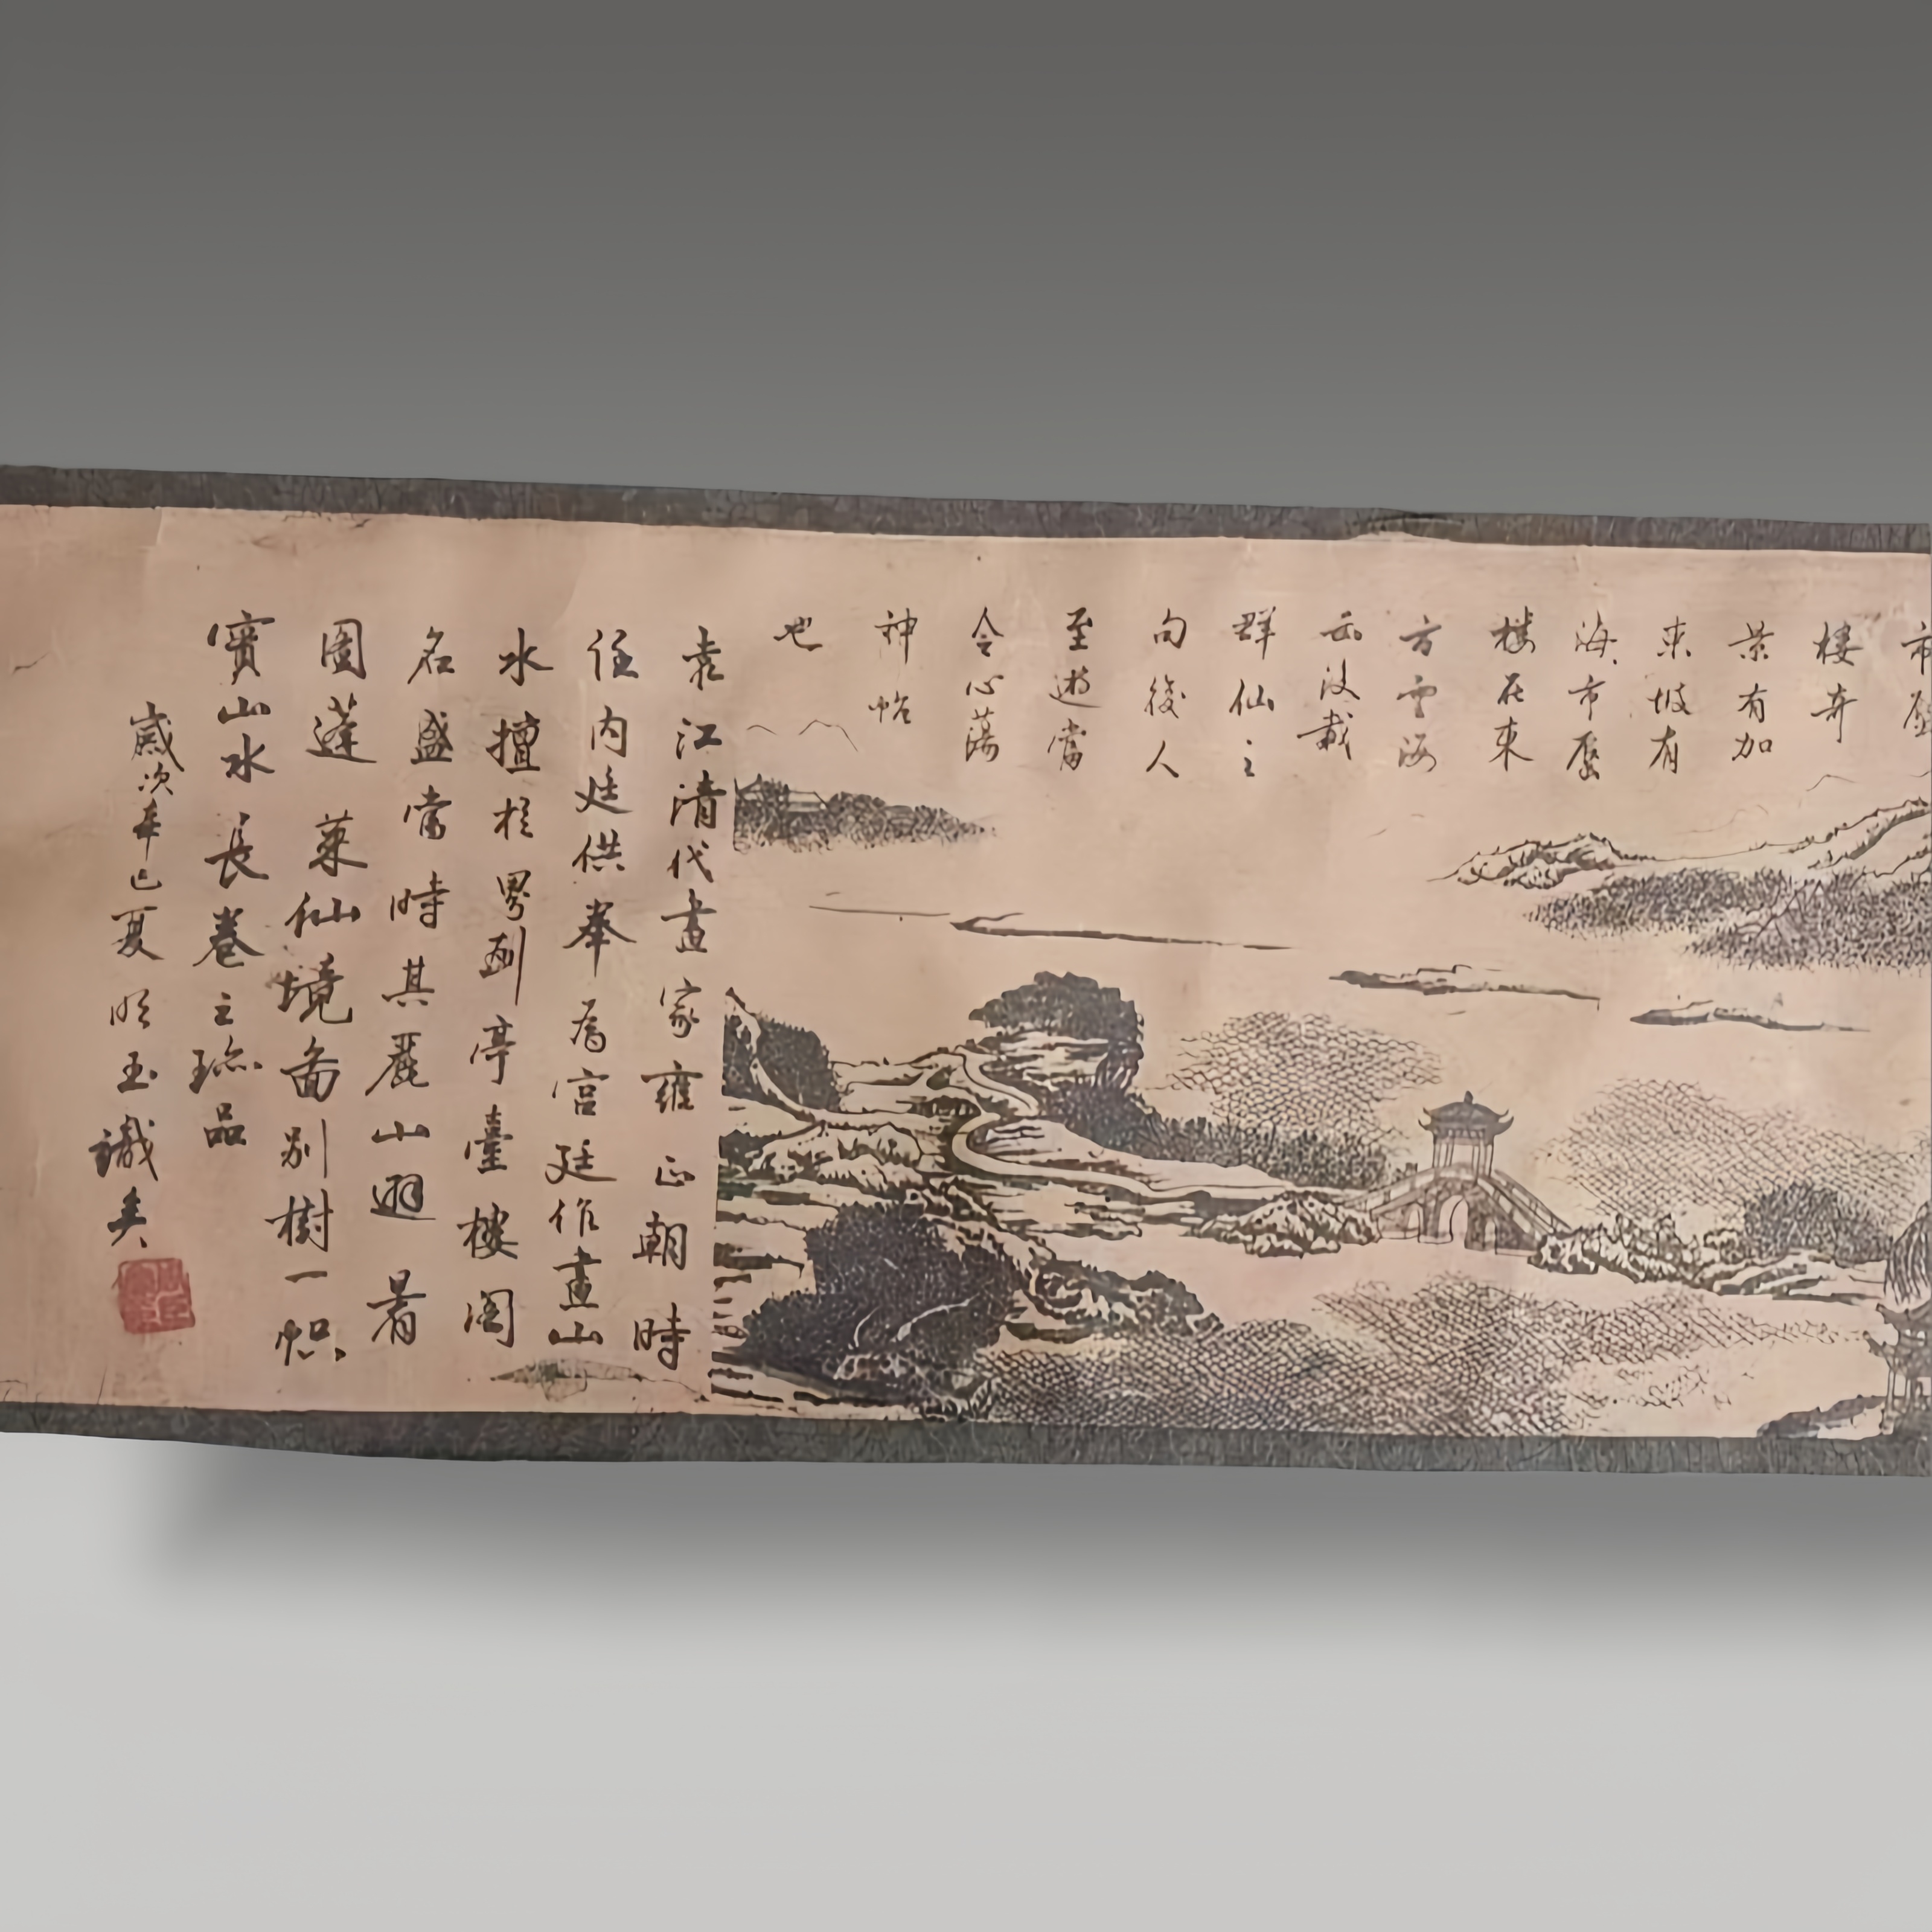 市蜃
楼奇
景有加
東坡有
海市蜃
樓在東
方雲海
云没載
群仙之
句後人
至遊當
令心蕩
神怡
也
袁江清代畫家雍正朝時
任内廷供奉為宫廷作畫山
水擅於界劃亭臺樓閣
名盛當時其麗山迥
圖蓬萊仙境面别樹一幟
寶山水長卷之珎品
歲次辛巳夏 玉識矣